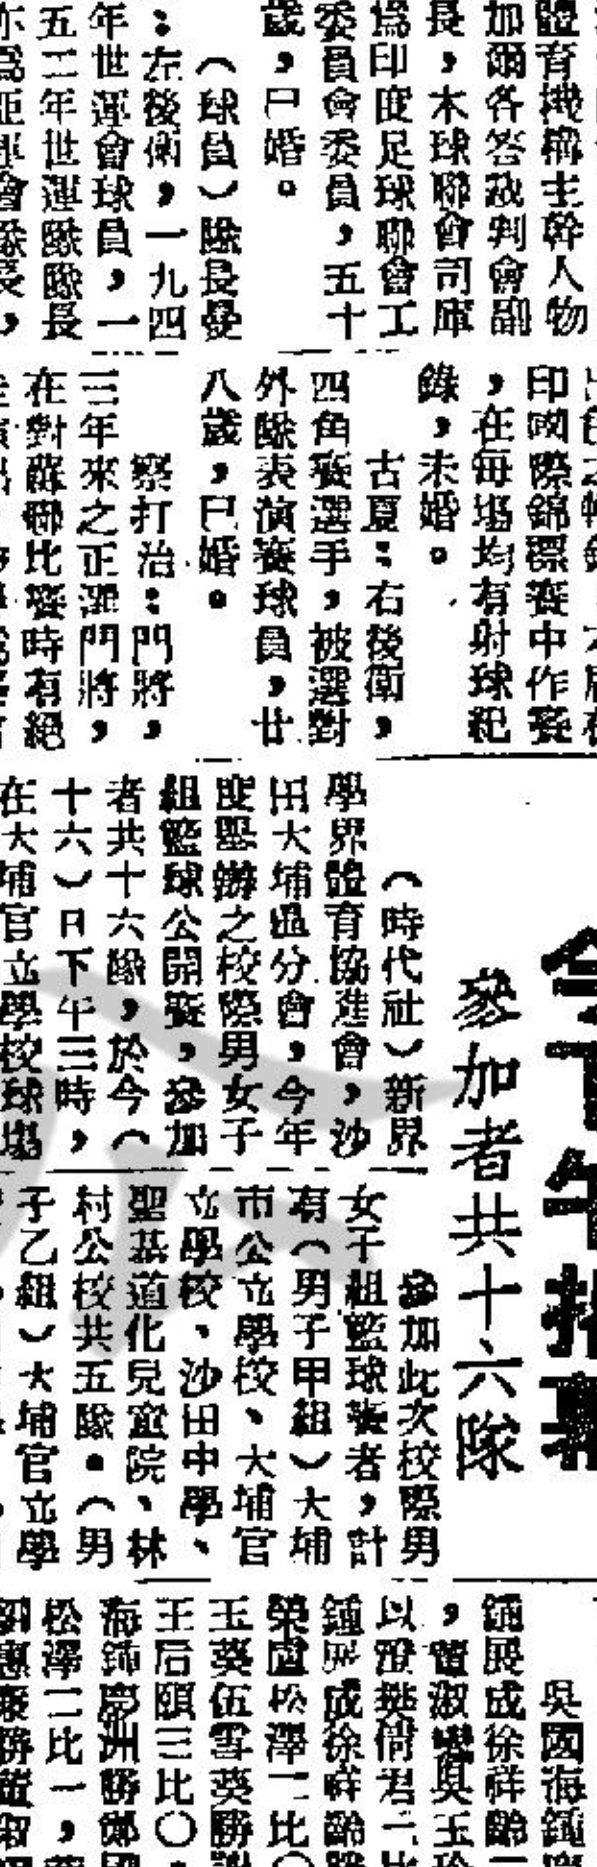 體育機構主幹人物
加爾各答裁判會副
長，木球聯會司庫
爲印度足球聯會工
委員會委員，五十
歲，已婚。
（球員）隊長曼
：左後衛，一九四
年世運會球員，一
五二年世運隊隊長
亦爲亞運會隊長，
印國際錦標賽中作賽
，在每場均有射球紀
錄，未婚。
古夏：右後衛，
四角賽選手，被選對
外隊表演賽球員，廿
八歲，已婚。
察打治：門將，
三年來之正選門將，
在對蘇聯比賽時有絕
今下午揭幕
參加者共十六隊
（時代社）新界
學界體育協進會，沙
田大埔區分會，今年
度舉辦之校際男女子
組籃球公開賽，參加
者共十六隊，於今（
十六）日下午三時，
在大埔官立學校球場
參加此次校際男
女子組籃球賽者，計
有（男子甲組）大埔
市公立學校、大埔官
立學校、沙田中學、
聖基道化兒童院、林
村公校共五隊。（男
子乙組）大埔官立學
吳國海鍾
鍾展成徐祥齡
，曾淑嫻吳玉
以澄樊倩君二比
鍾展成徐祥齡勝
榮盧松澤二比〇
玉葵伍雪英勝謝
王后頤三比〇，
海鈽慶洲勝鄭國
松澤二比一，